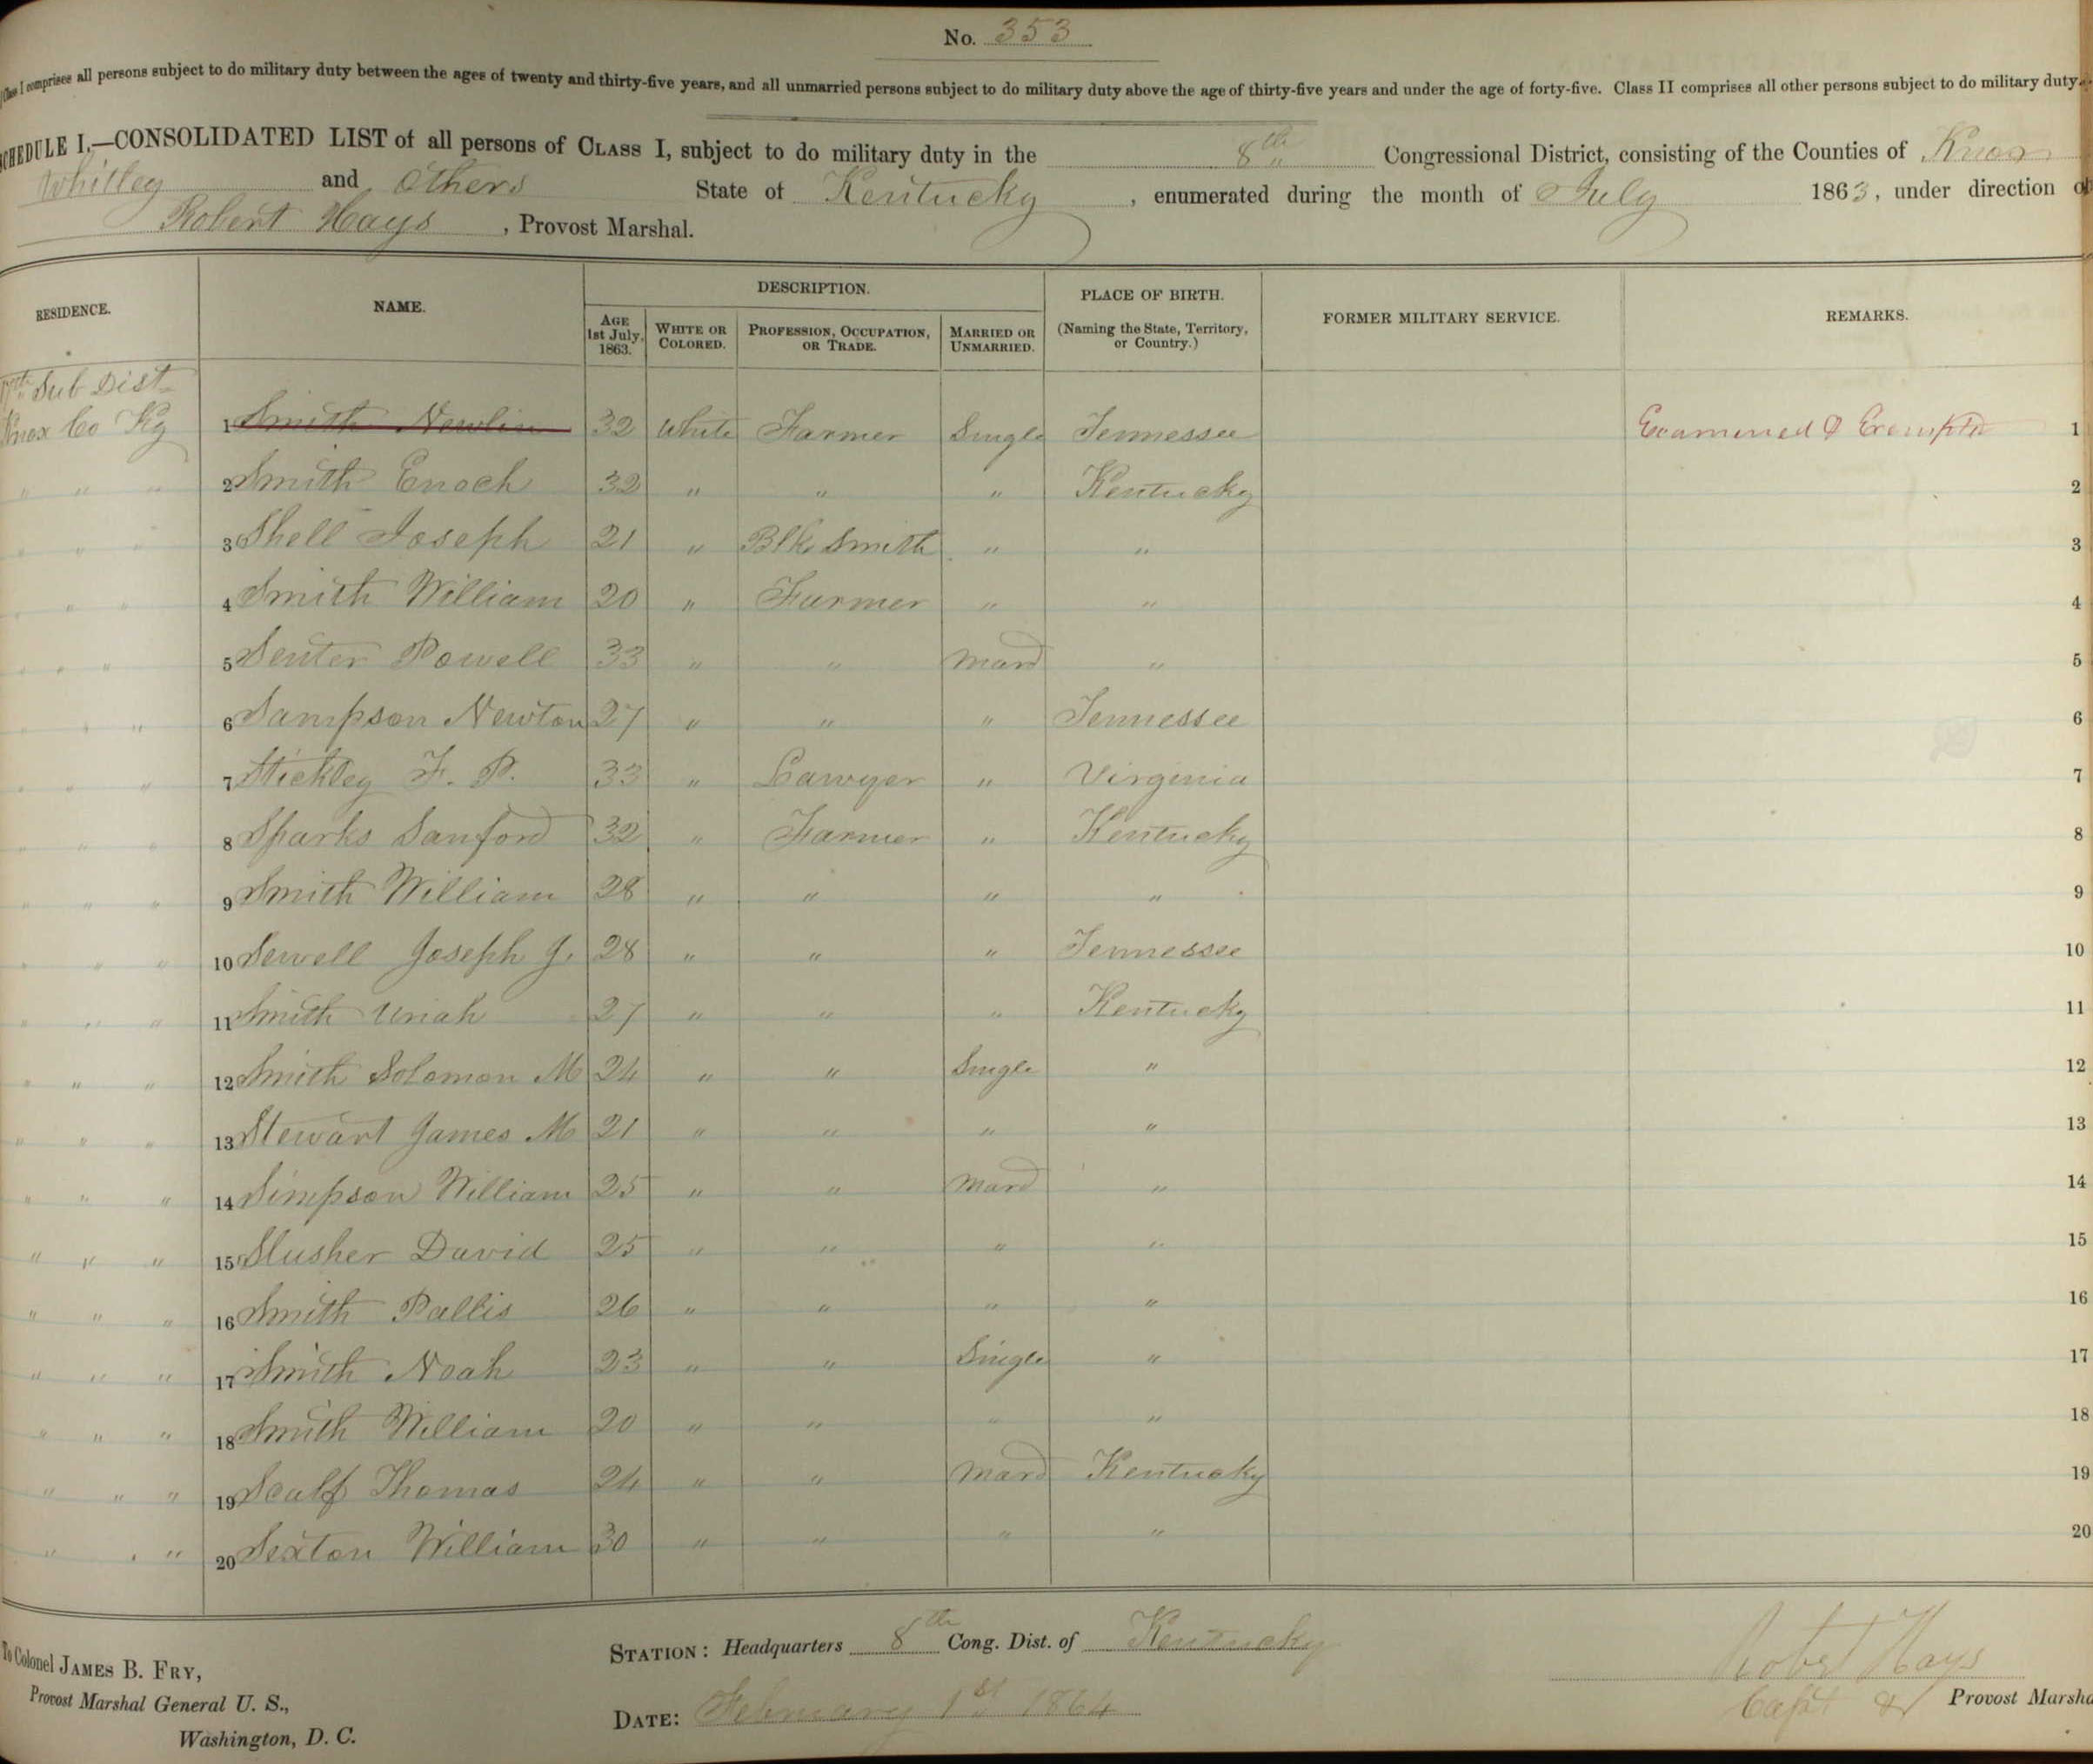 No. 353
Class I comprises all persons subject to do military duty between the ages of twenty and thirty-five years, and all unmarried persons subject to do military duty above the age of thirty-five years and under the age of forty-five. Class II comprises all other persons subject to do military duty.
SCHEDULE I.—CONSOLIDATED LIST of all persons of CLASS I, subject to do military duty in the 8th Congressional District, consisting of the Counties of Knox
Whitley and Others State of Kentucky, enumerated during the month of July 1863, under direction of
Robert Hays, Provost Marshal.
RESIDENCE. NAME. DESCRIPTION. PLACE OF BIRTH. FORMER MILITARY SERVICE. REMARKS.
AGE 1st July, 1863. WHITE OR COLORED. PROFESSION, OCCUPATION, OR TRADE. MARRIED OR UNMARRIED. (Naming the State, Territory, or Country.)
Sub Dist
Knox Co Ky 1 Smith Newlin 32 White Farmer Single Tennessee Examined & Exempted 1
" " " 2 Smith Enoch 32 " " " Kentucky 2
" " " 3 Shell Joseph 21 " Blk Smith " " 3
" " 4 Smith William 20 " Farmer " " 4
" " " 5 Senter Powell 33 " " Mard " 5
" " " 6 Sampson Newton 27 " " " Tennessee 6
" " " 7 Stickley F. P. 33 " Lawyer " Virginia 7
" " " 8 Sparks Sanford 32 " Farmer " Kentucky 8
" " " 9 Smith William 28 " " " " 9
" " " 10 Sewell Joseph J. 28 " " " Tennessee 10
" " " 11 Smith Uriah 27 " " " Kentucky 11
" " " 12 Smith Solomon M 24 " " Single " 12
" " " 13 Stewart James M 21 " " " " 13
" " " 14 Simpson William 25 " " Mard " 14
" " " 15 Slusher David 25 " " " " 15
" " " 16 Smith Pallis 26 " " " " 16
" " " 17 Smith Noah 23 " " Single " 17
" " " 18 Smith William 20 " " " " 18
" " " 19 Scalf Thomas 24 " " Mard Kentucky 19
" " " 20 Sexton William 30 " " " " 20
To Colonel JAMES B. FRY,
Provost Marshal General U. S.,
Washington, D. C.
STATION: Headquarters 8th Cong. Dist. of Kentucky
DATE: February 1st 1864
Robert Hays
Capt & Provost Marshal